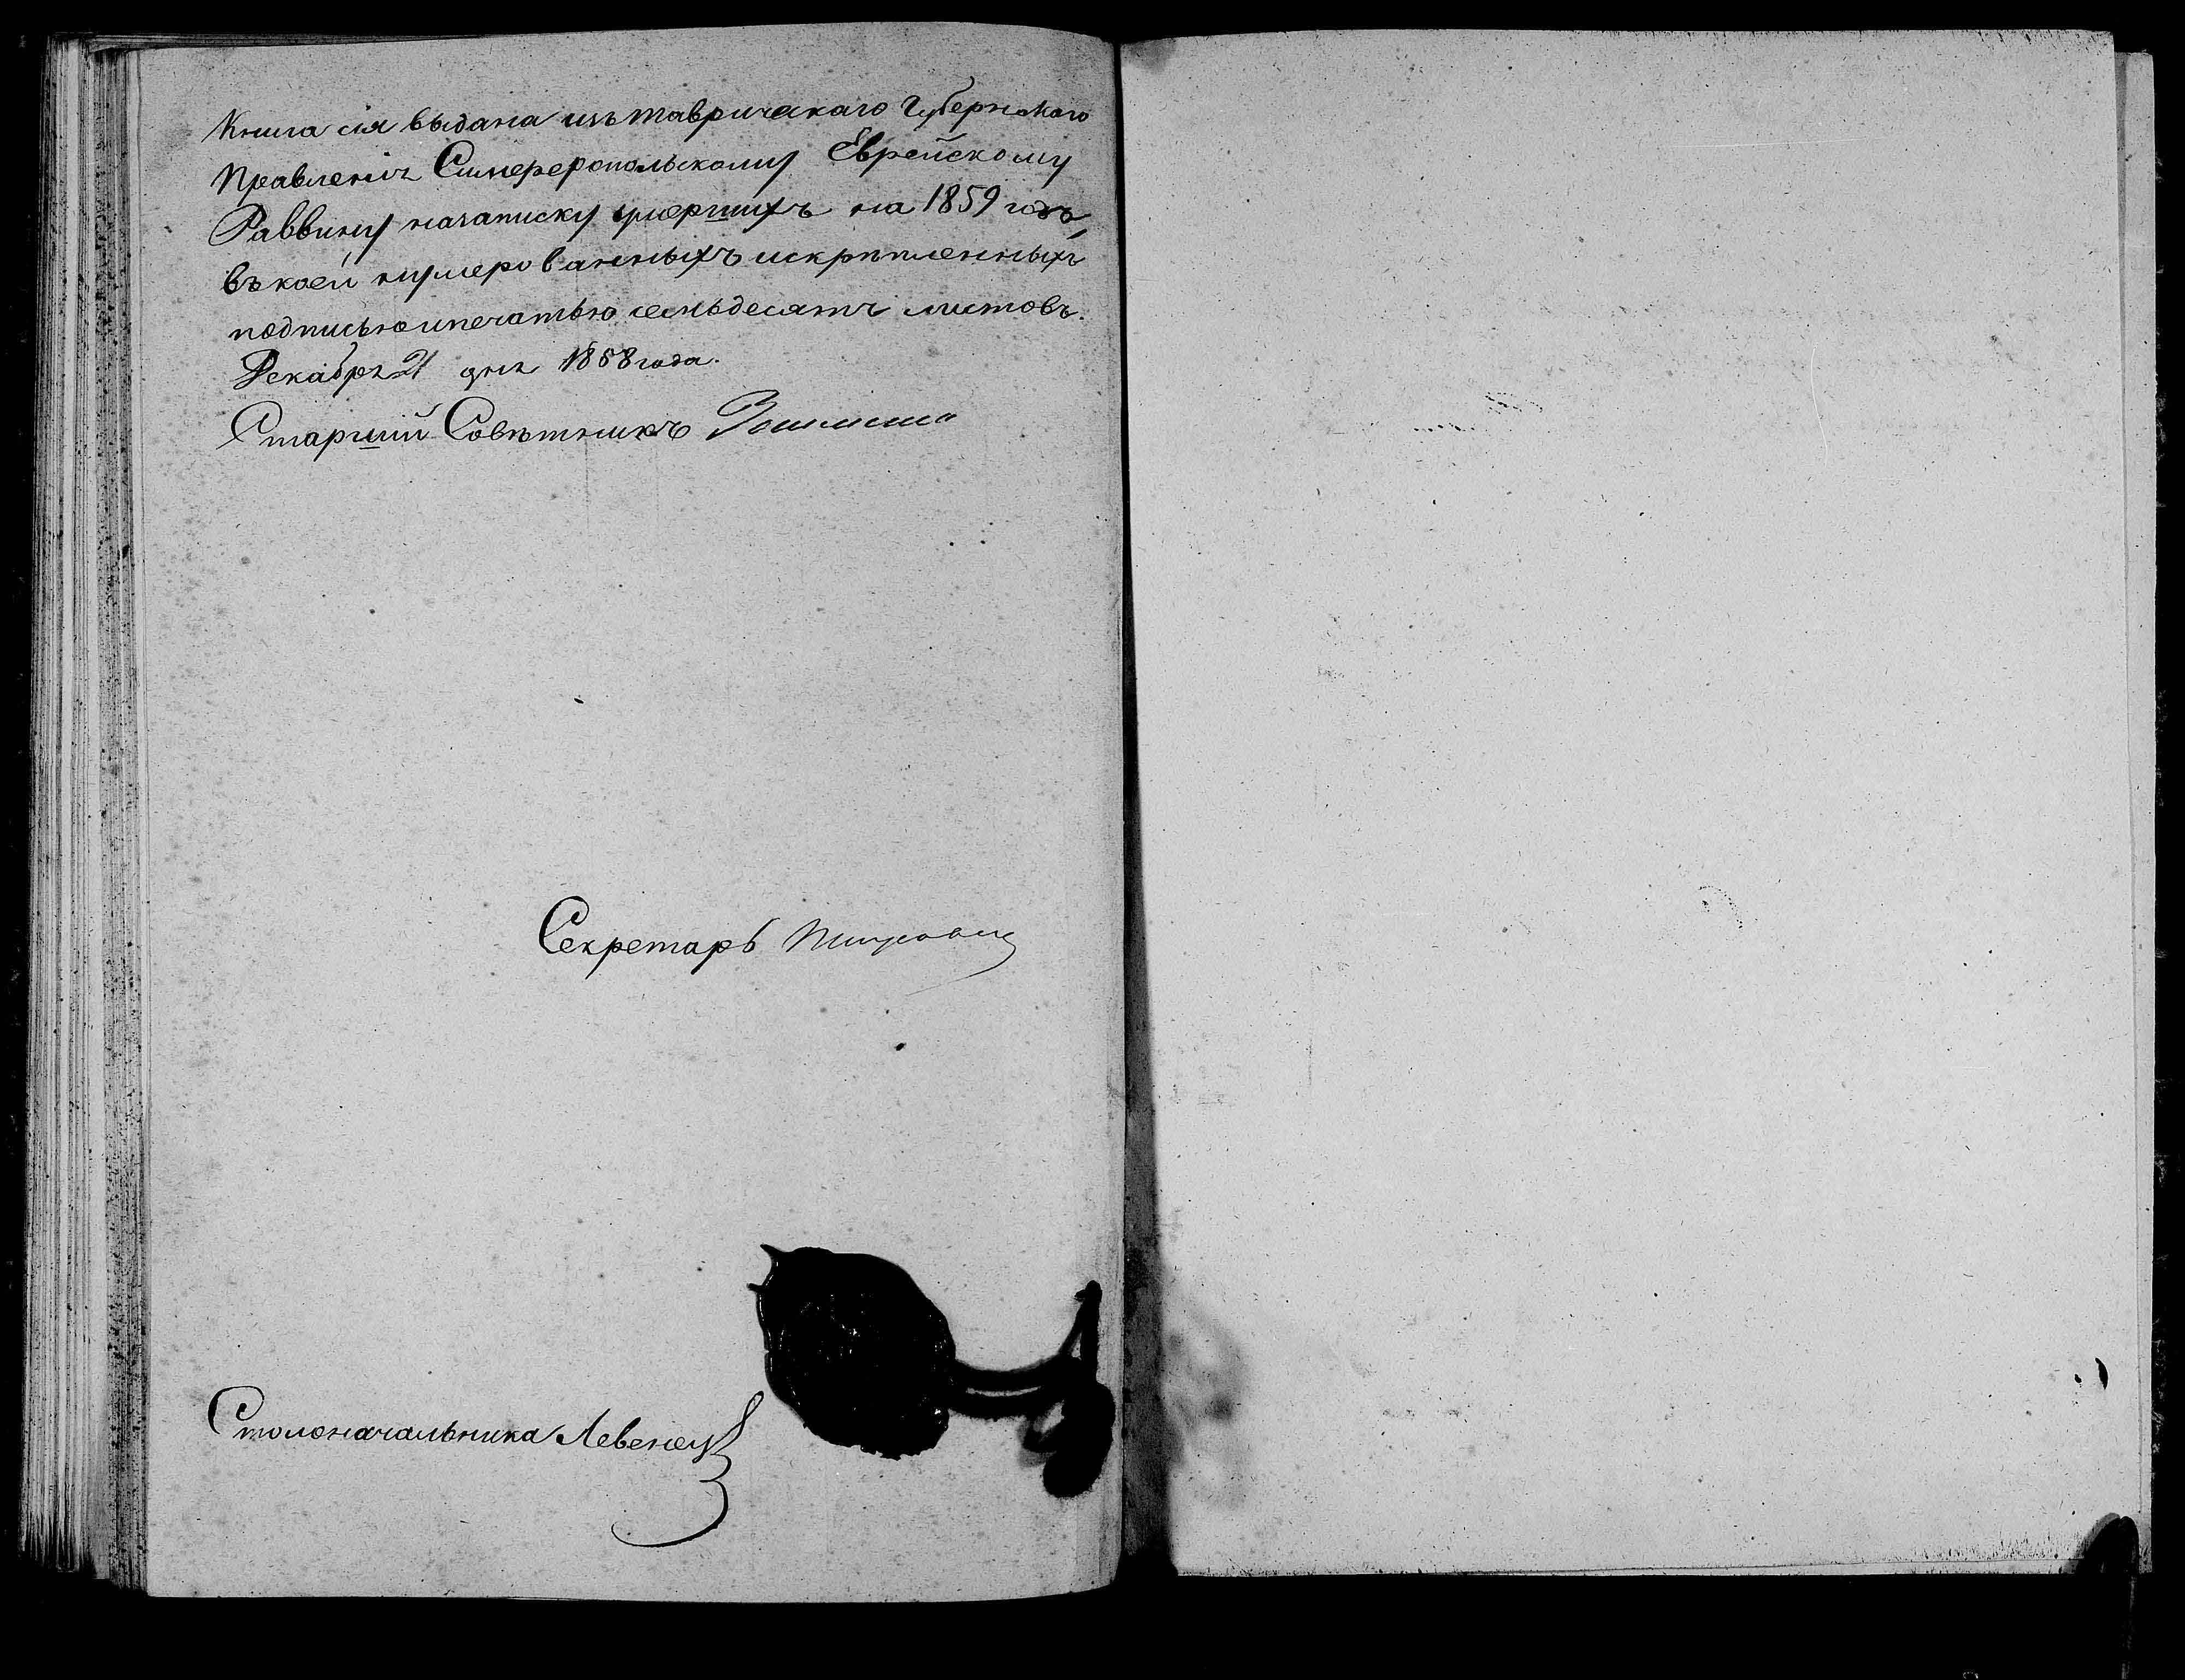 Книга сія выдана изъ Таврическаго Губернскаго
Правленія Симферопольскому Еврейскому
Раввину на записку умершихъ на 1859 годъ,
въ коей нумерованныхъ и скрѣпленныхъ
подписью и печатью семьдесятъ листовъ.
Декабря 21 дня 1858 года.
Старшій Совѣтникъ
Секретарь
Столоначальника Левенец